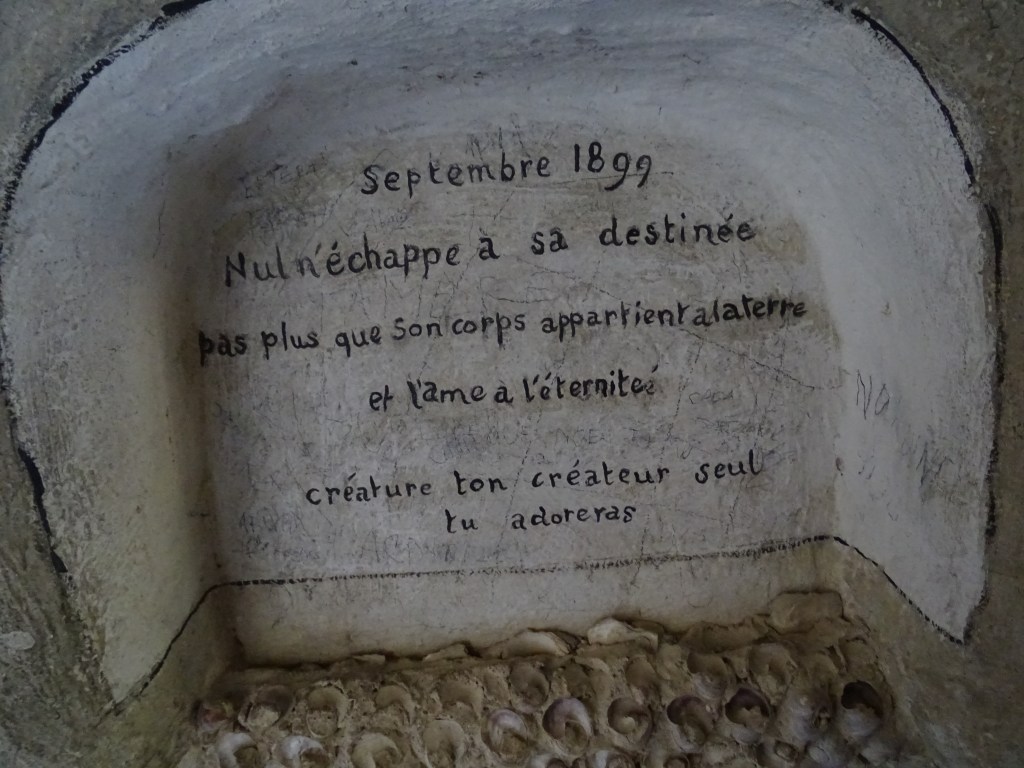 Septembre 1899
Nul n'échappe à sa destinée
pas plus que son corps appartient a la terre
et l'ame a l'éternité
créature ton créateur seul
tu adoreras
No